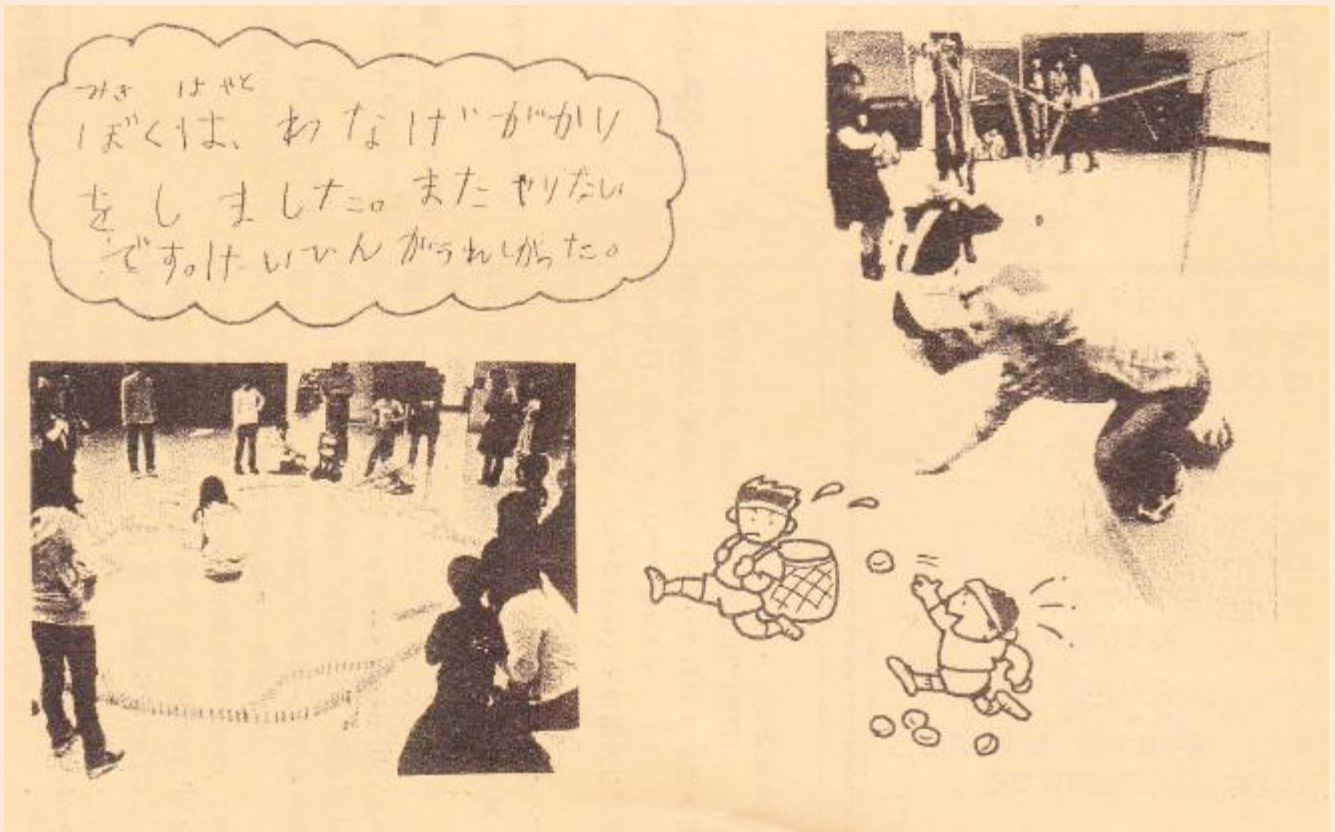 みき はやと
ぼくは、わなげがかり
をしました。またやりたい
です。けいひんがうれしかった。